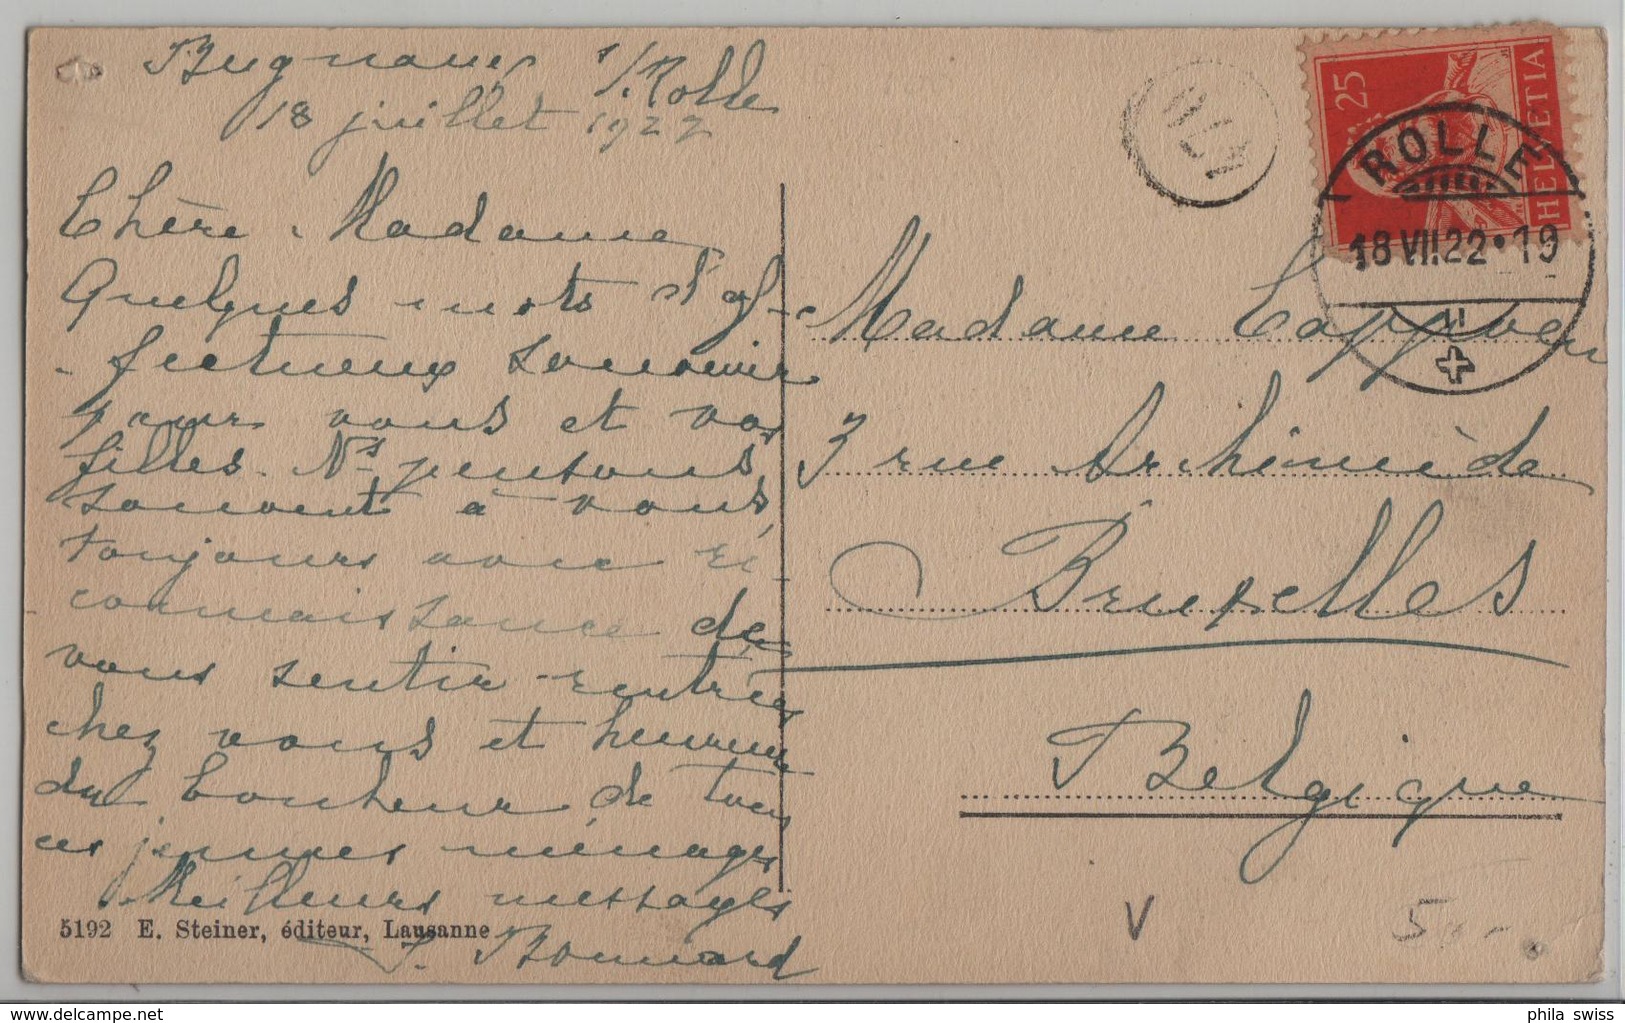 Bugnaux s/Rolle
18 juillet 1922
Chère Madame
Quelques mots d'af-
fectueux souvenir
pour vous et vos
filles. Ns pensons
souvent à vous,
toujours avec re-
connaissance de
vous sentir rentrées
chez vous et heureuse
du bonheur de tous
ces jeunes ménages
Meilleurs messages
Bonnard
5192 E. Steiner, éditeur, Lausanne
25
HELVETIA
ROLLE
18 VII.22•19
Madame
3 rue Archimède
Bruxelles
Belgique
V
5.--
phila swiss